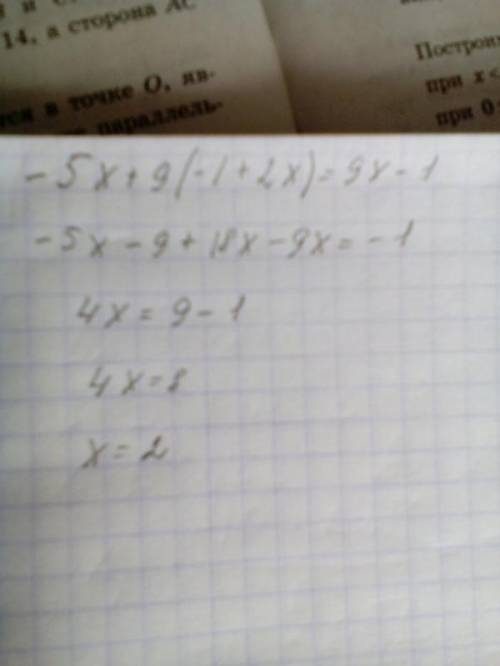 и
14, а сторона AC
в точке O, яв-
параллель-
Построи
при x <
при 0
-5x+9(-1+2x)=9x-1
-5x-9+18x-9x=-1
4x=9-1
4x=8
x=2